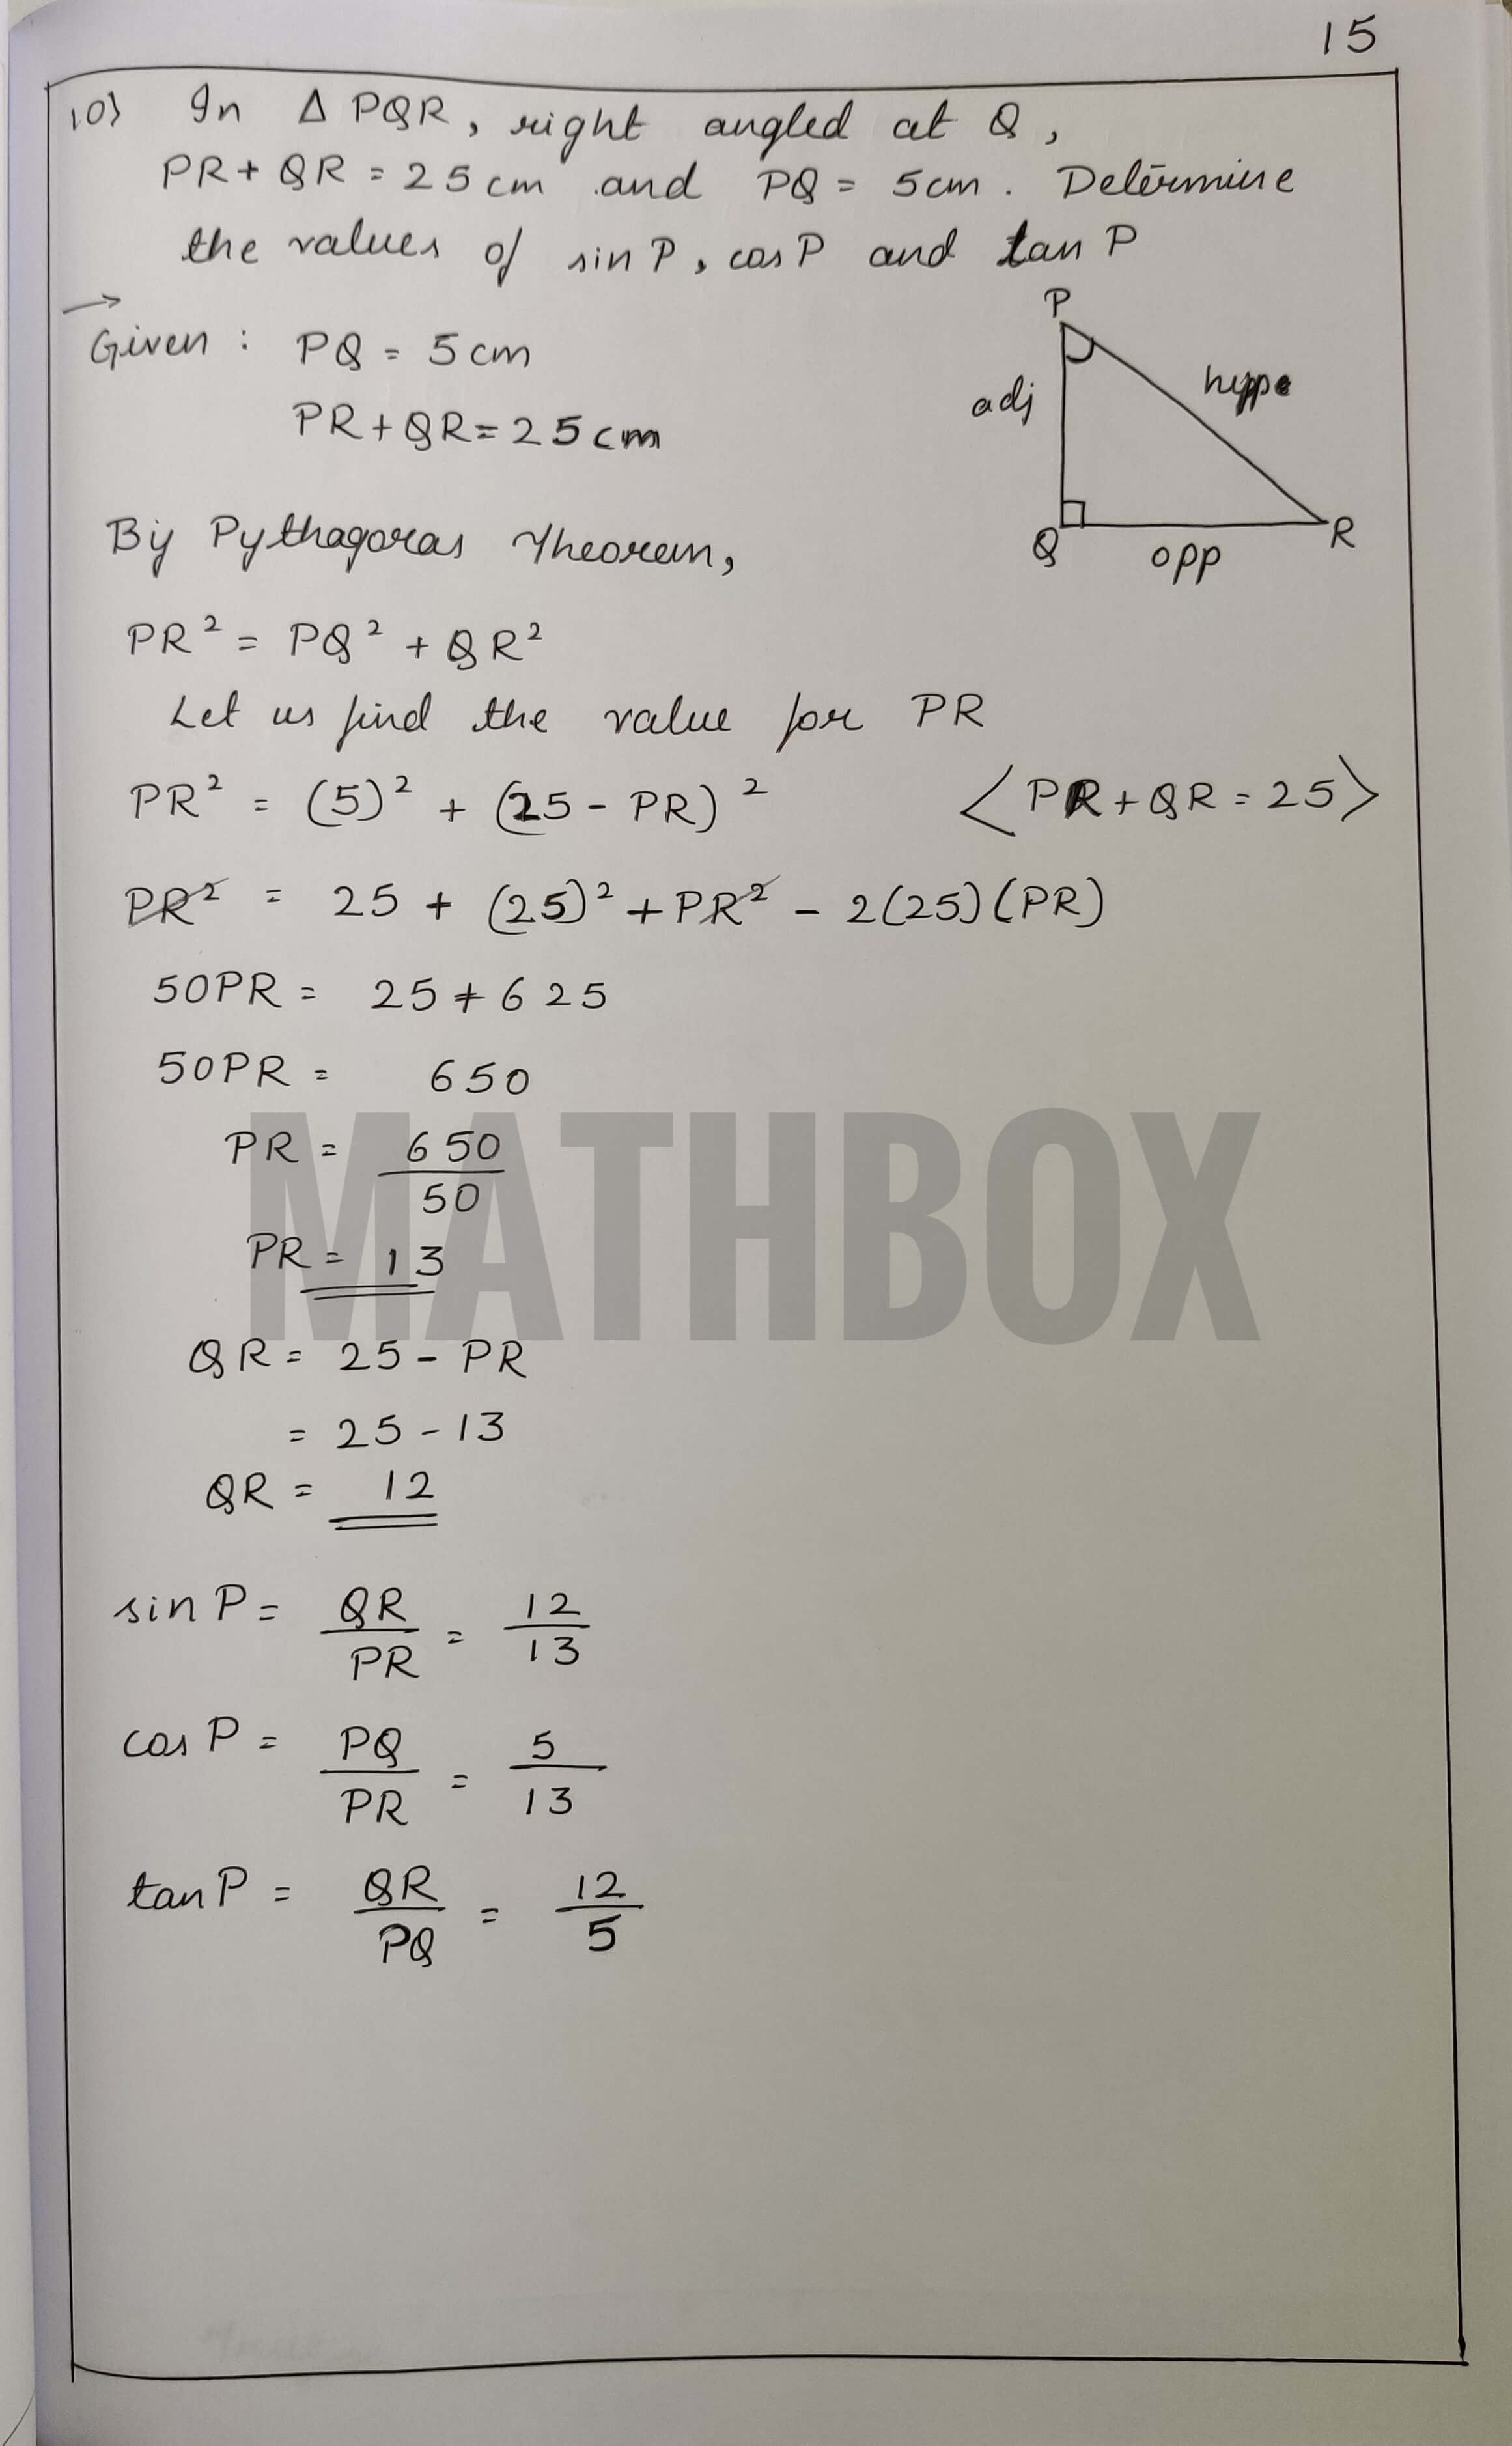 15
10) In Δ PQR, right angled at Q,
PR + QR = 25 cm and PQ = 5cm. Determine
the values of sin P, cos P and tan P
→
Given : PQ = 5 cm
PR + QR = 25 cm
P
adj
hype
Q
opp
R
By Pythagoras Theorem,
PR² = PQ² + QR²
Let us find the value for PR
PR² = (5)² + (25 - PR)² <PR + QR = 25>
PR² = 25 + (25)² + PR² - 2(25)(PR)
50PR = 25 + 625
50PR = 650
PR = 650/50
PR = 13
MATHBOX
QR = 25 - PR
= 25 - 13
QR = 12
sin P = QR/PR = 12/13
cos P = PQ/PR = 5/13
tan P = QR/PQ = 12/5